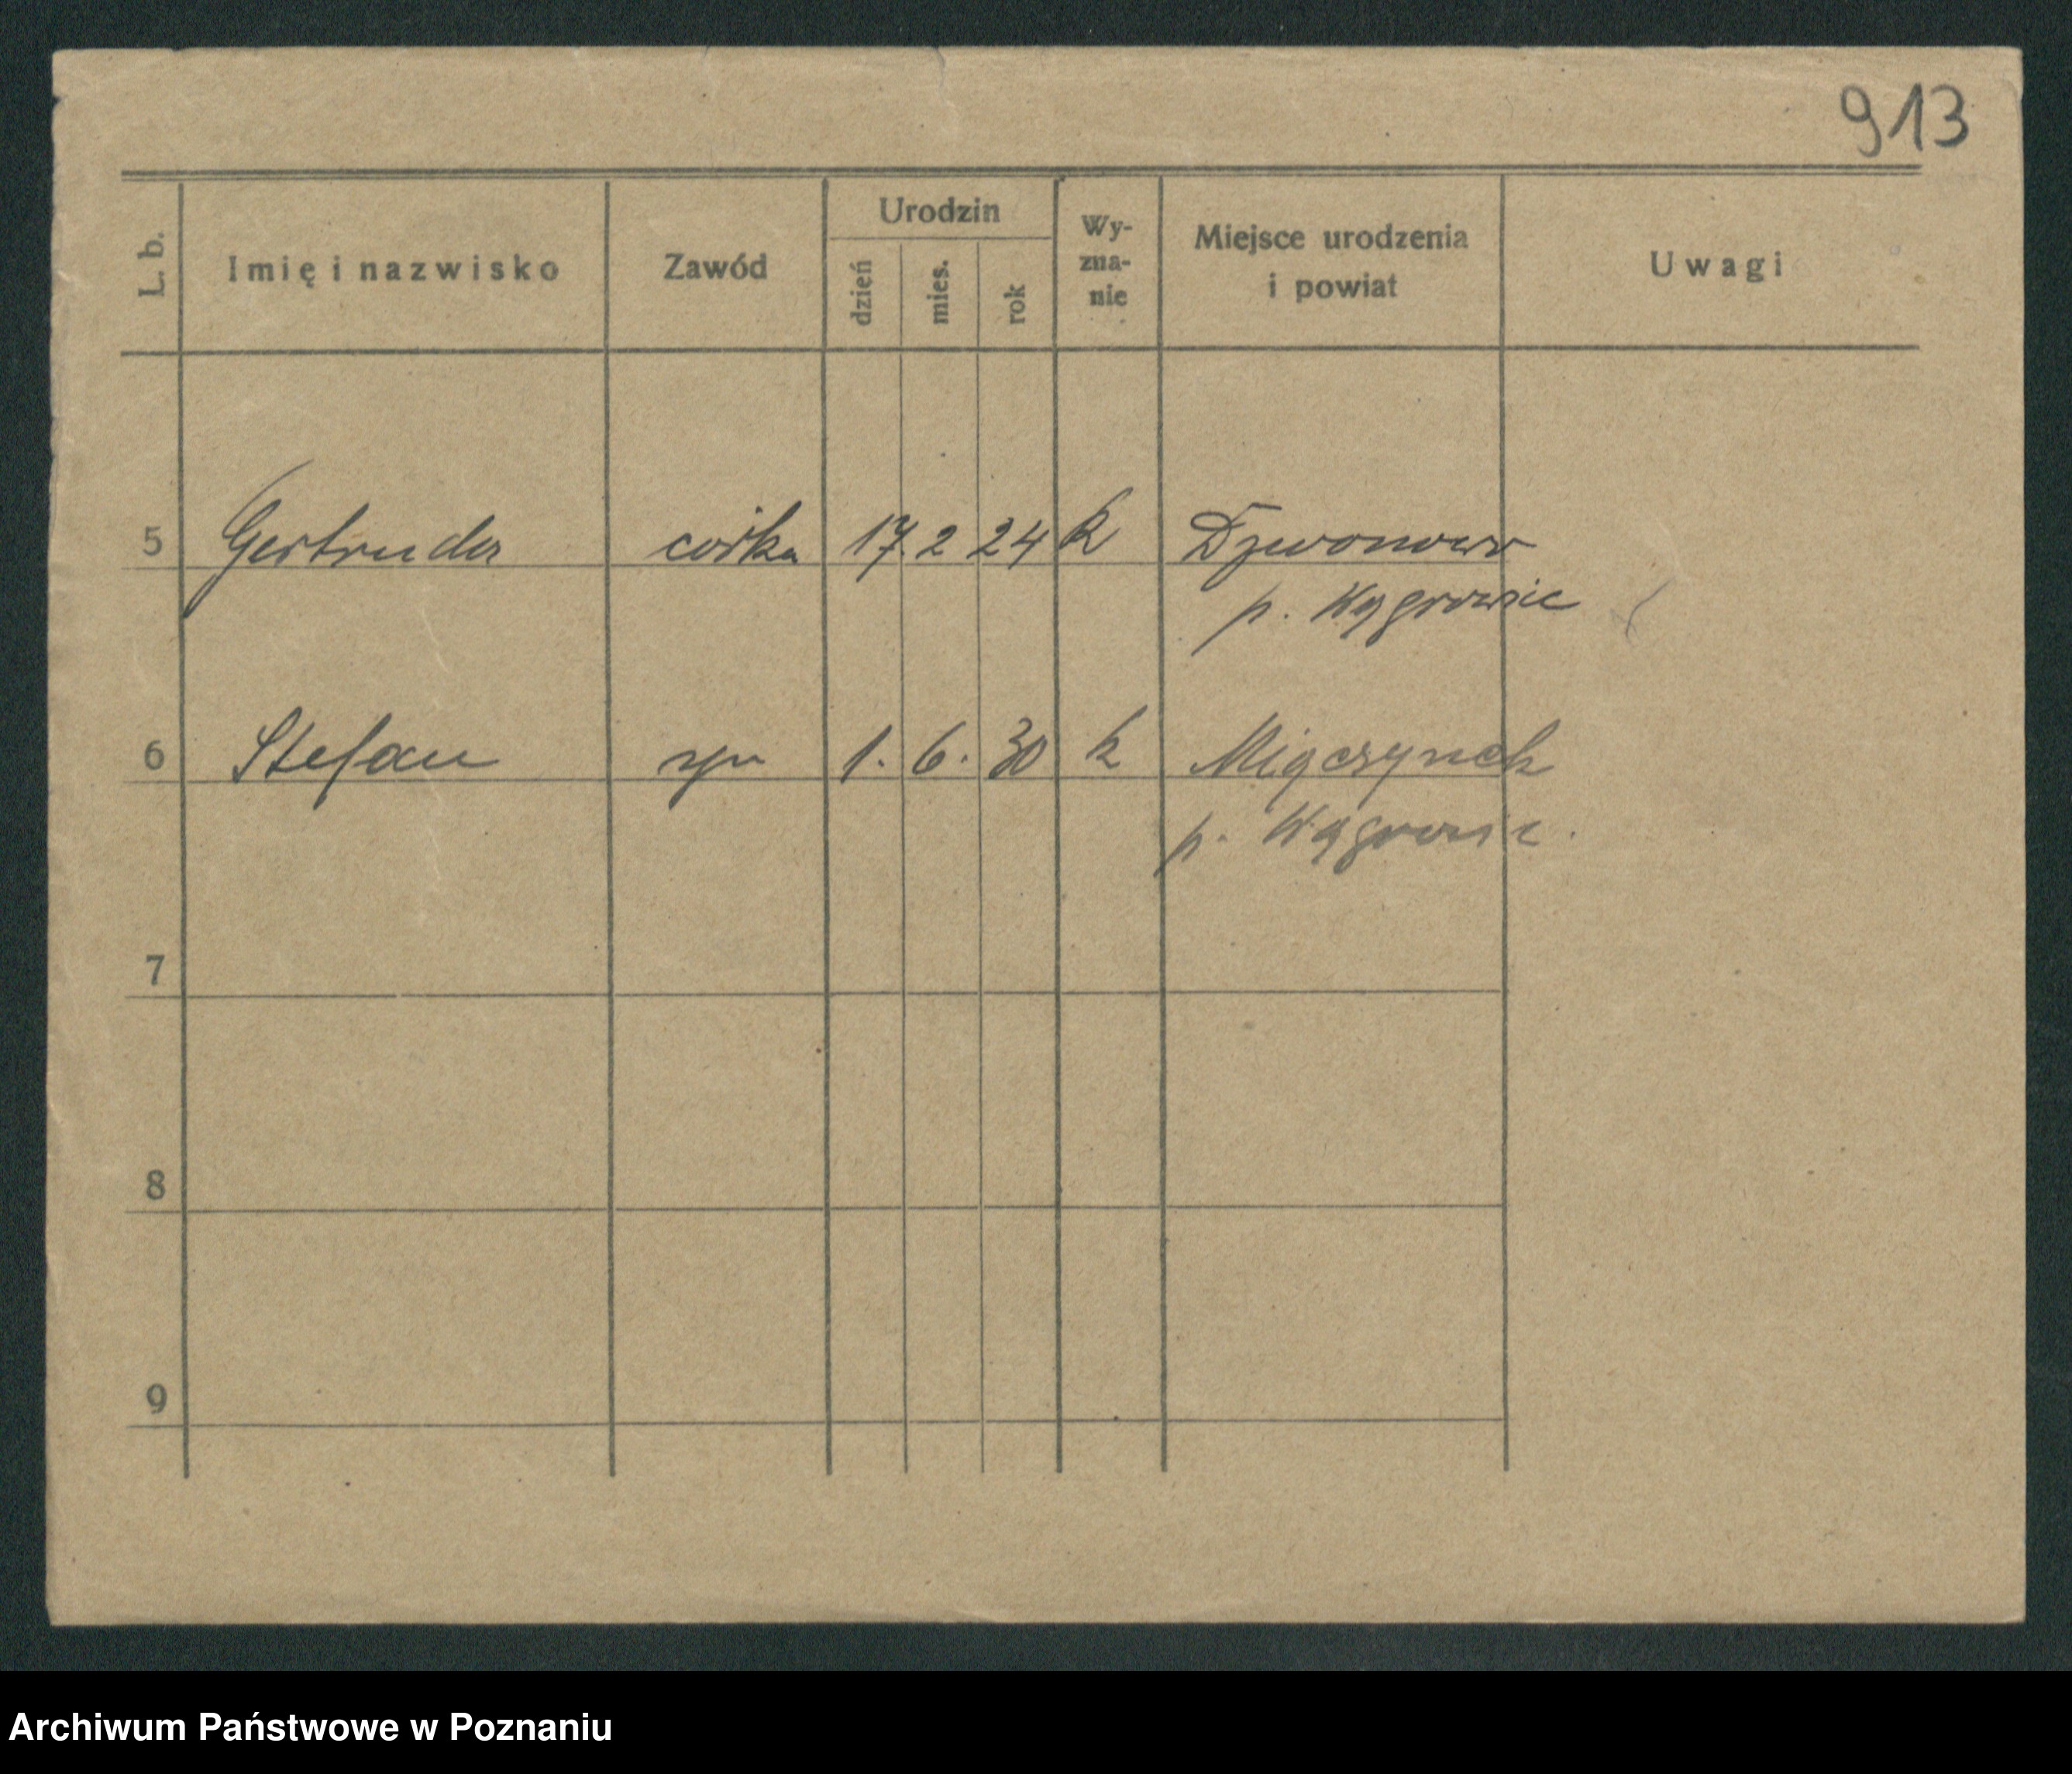 913
L. b.
Imię i nazwisko
Zawód
Urodzin
dzień
mies.
rok
Wy-
zna-
nie
Miejsce urodzenia
i powiat
Uwagi
5 Gertruda córka 17. 2 24 k Dzwonowo
p. Wągrowic
6 Stefan syn 1. 6. 30 k Miączynek
p. Wągrowic.
7
8
9
Archiwum Państwowe w Poznaniu